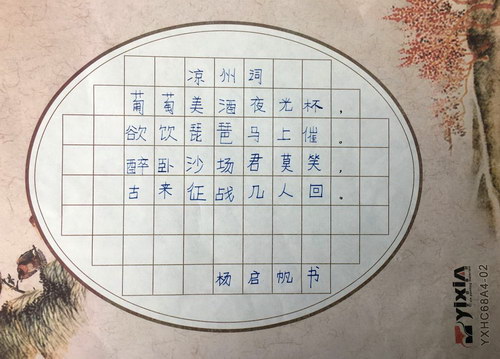 凉州词
葡萄美酒夜光杯，
欲饮琵琶马上催。
醉卧沙场君莫笑，
古来征战几人回。
杨启帆书
YIXIN
YXHC68A4-02